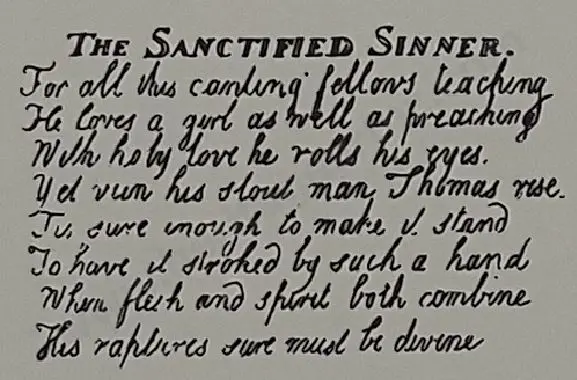 THE SANCTIFIED SINNER.
For all this canting fellows teaching
He loves a girl as well as preaching
With holy love he rolls his eyes.
Yet view his stout man Thomas rise.
Tis sure enough to make it stand
To have it stroked by such a hand
When flesh and spirit both combine
His raptures sure must be divine